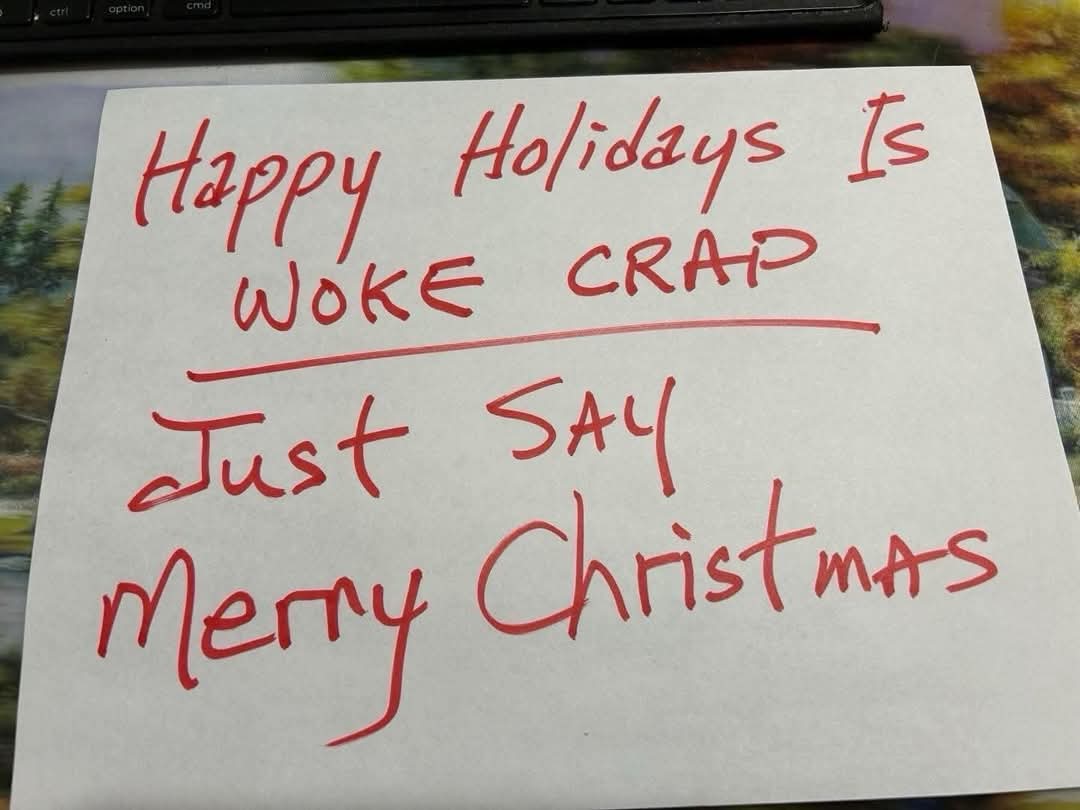 ctrl option cmd
Happy Holidays Is
WOKE CRAP
Just SAY
Merry ChristmAS